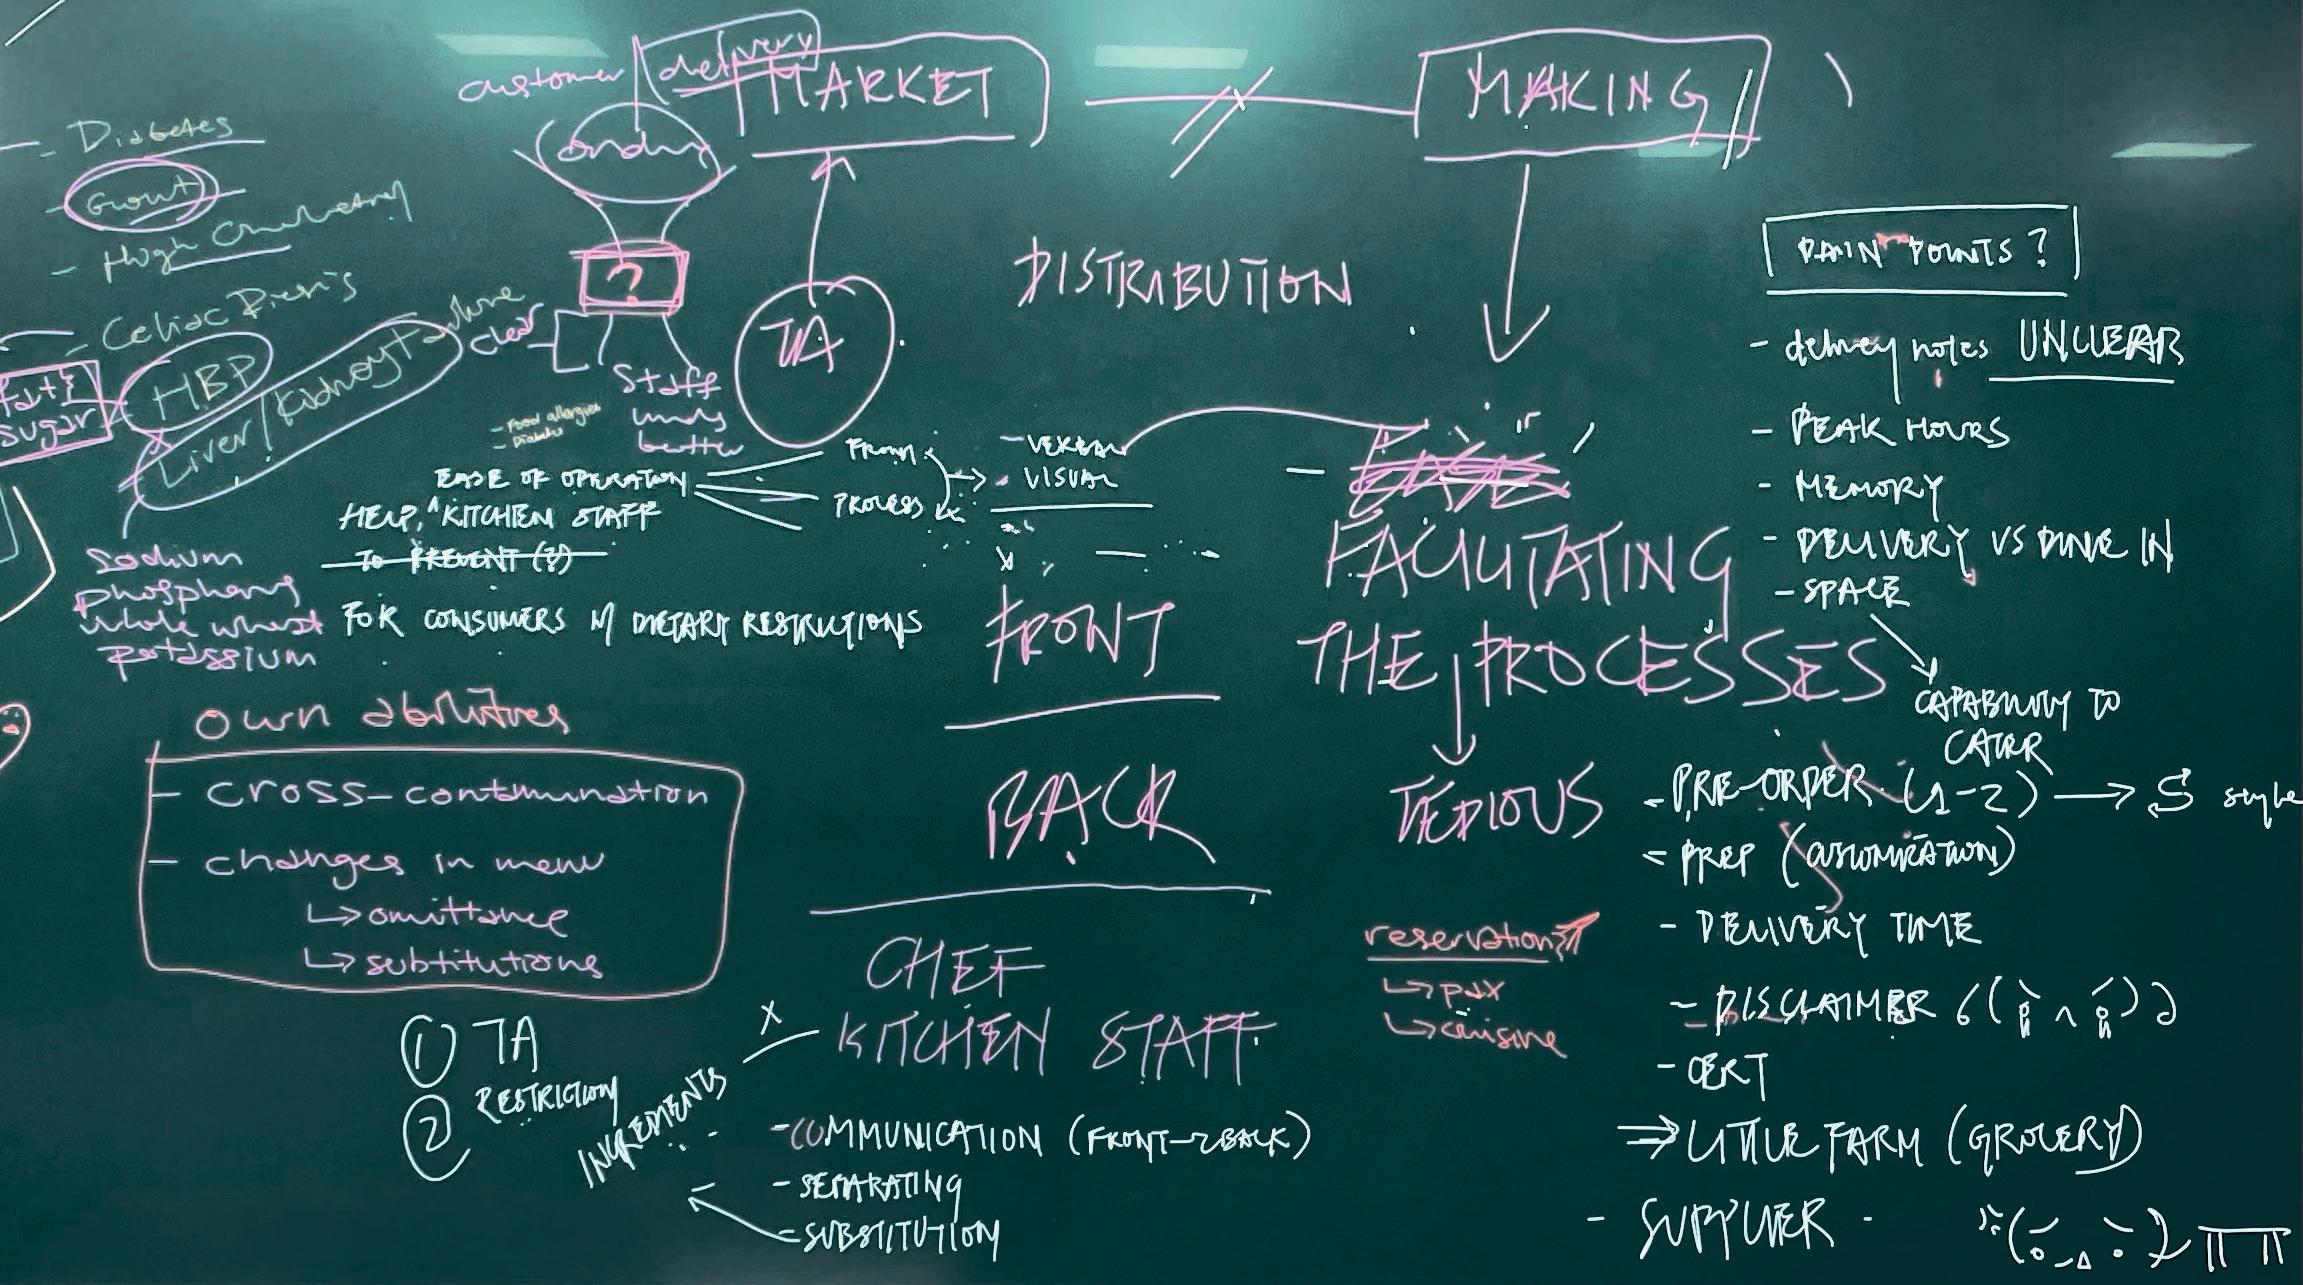 customer
delivery
MARKET
MAKING
- Diabetes
- Gout
- High
- Celiac
HBP
Liver/Kidney Failure
fat &
sugar
sodium
whole wheat
potassium
?
clear
Staff
better
- Food allergies
- Diabetes
TA
DISTRIBUTION
EASE OF OPERATION
HELP, ^ KITCHEN STAFF
TO PREVENT (?)
FOR CONSUMERS W DIETARY RESTRICTIONS
PROCESS
- VERBAL
- VISUAL
FRONT
BACK
CHEF
KITCHEN STAFF
- COMMUNICATION (FRONT → BACK)
- SEPARATING
- SUBSTITUTION
INGREDIENTS
X
own abilities
- cross-contamination
- changes in menu
↳ omittance
↳ subtitutions
① TA
RESTRICTION
②
FACILITATING
THE PROCESSES
TEDIOUS
reservations
↳ pax
↳ cuisine
PAIN POINTS?
- delivery notes UNCLEAR
- PEAK HOURS
- MEMORY
- DELIVERY VS DINE IN
- SPACE
CAPABILITY TO
CATER
- PRE-ORDER (1-2) →
- PREP (CUSTOMIZATION)
- DELIVERY TIME
- DISCLAIMER
- CERT
⇒ LITTLE FARM (GROCERY)
- SUPPLIER